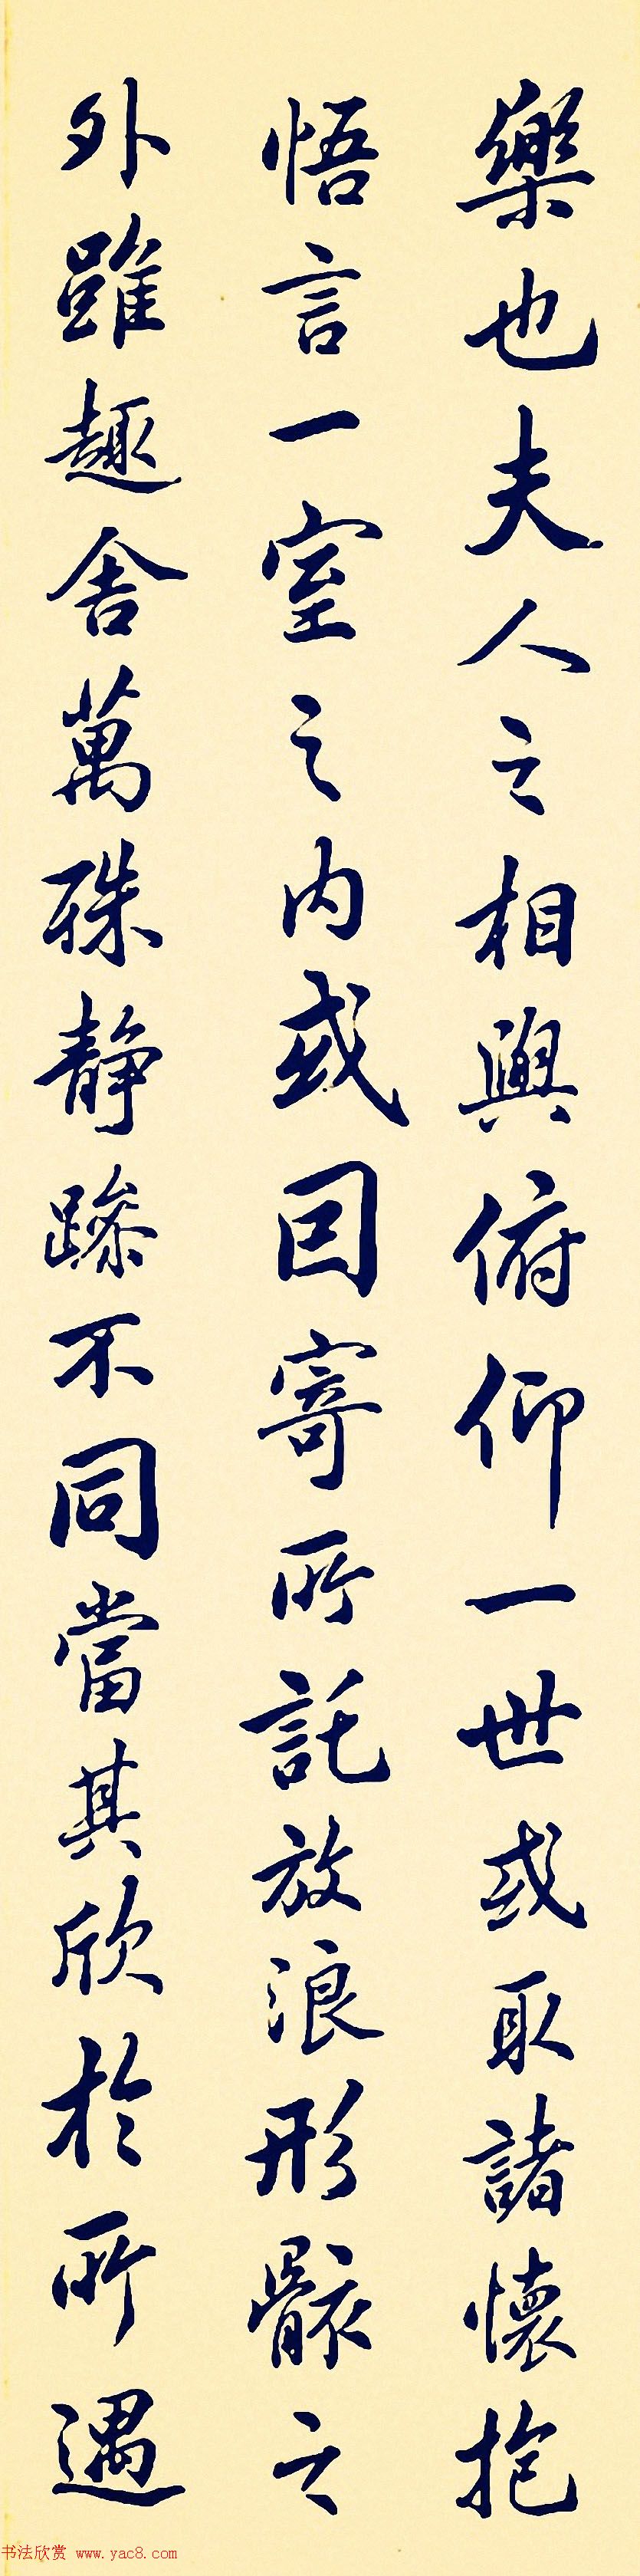 樂也夫人之相與俯仰一世或取諸懷抱
悟言一室之内或因寄所託放浪形骸之
外雖趣舍萬殊静躁不同當其欣於所遇
书法欣赏 www.yac8.com